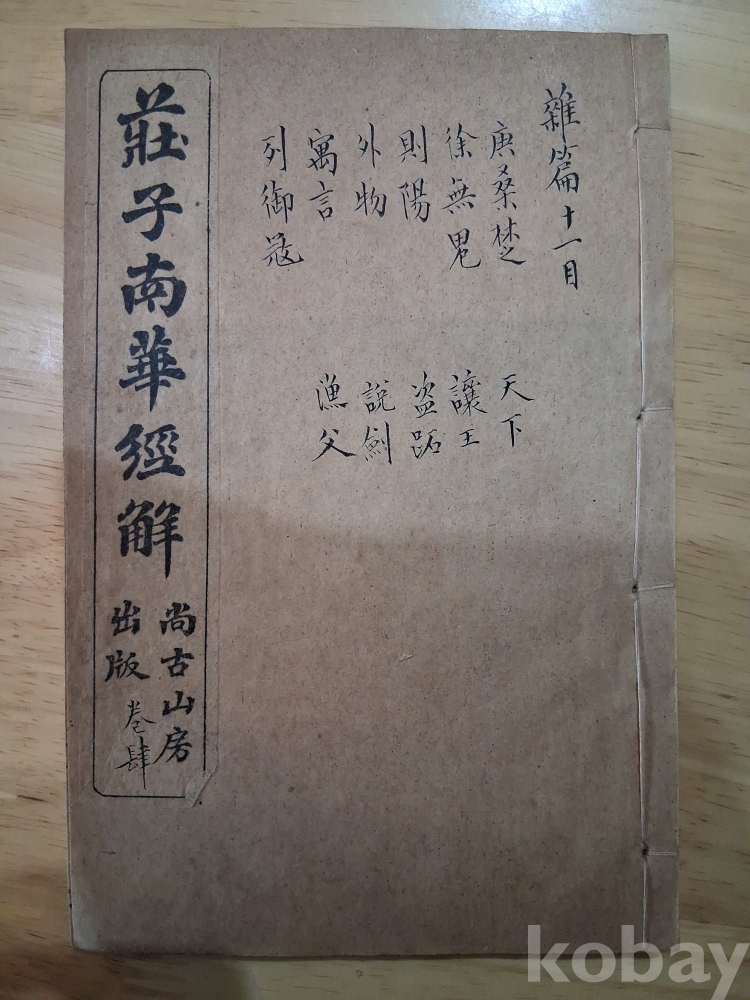 雜篇十一目
庚桑楚
徐無鬼
則陽
外物
寓言
列御寇
天下
讓王
盗跖
說劍
漁父
莊子南華經解
尚古山房
出版
卷肆
kobay